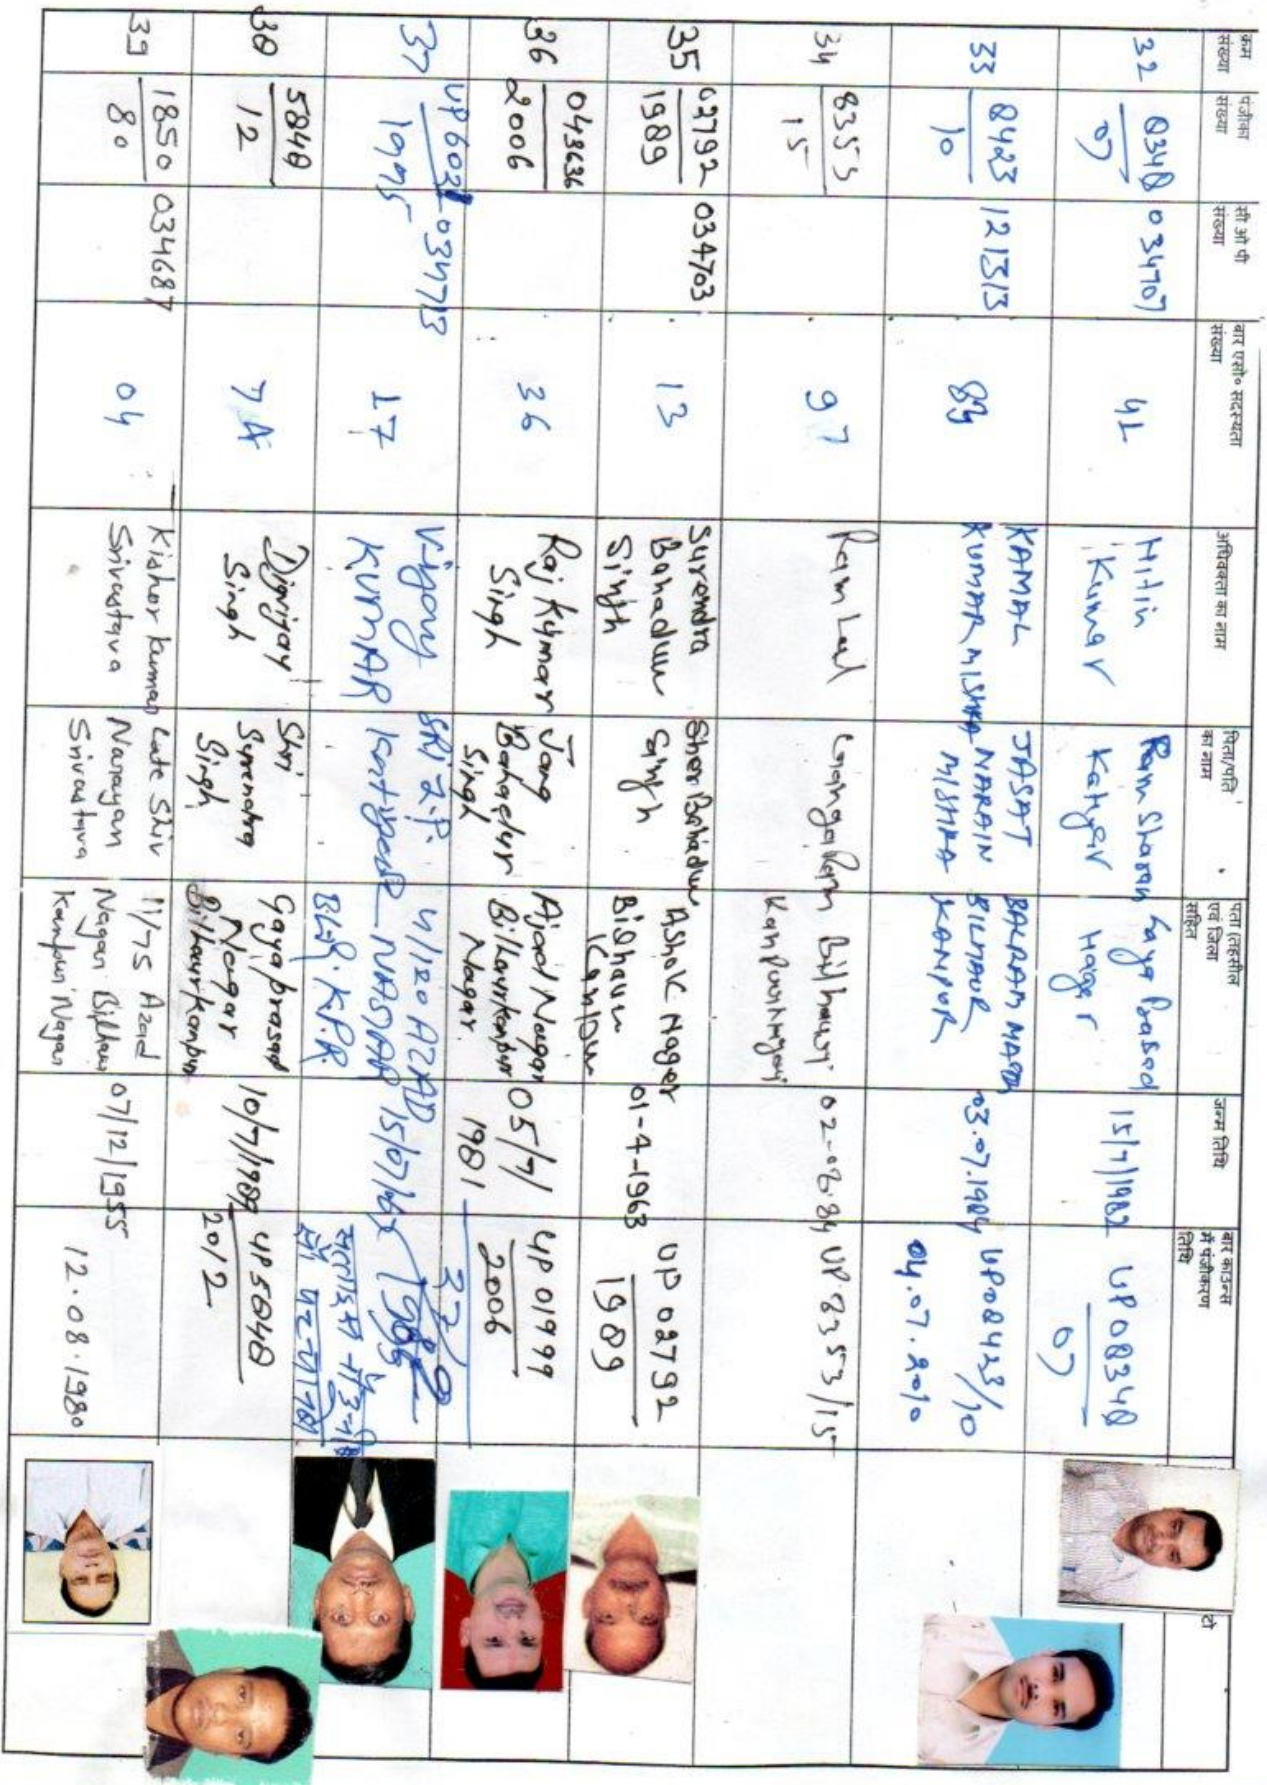 क्रम संख्या
पंजीका संख्या
सी ओ पी संख्या
बार एसो० सदस्यता संख्या
अधिवक्ता का नाम
पिता/पति का नाम
पता (तहसील एवं जिला सहित
जन्म तिथि
बार काउन्स में पंजीकरण तिथि
टो
32
8348
07
034707
41
Nitin
Kumar
Ram Sharan
Katiyar
Gaya Prasad
Nagar
15/7/1982
UP 08348
07
33
8423
10
121313
89
KAMAL
KUMAR MISHRA
JASAT
NARAIN
MISHRA
BALRAM
BILHAUR
KANPUR
03.07.1984
UP08423/10
04.07.2010
34
8353
15
97
Ram Lal
Ganga Ram
Bilhaur
Kanpur Nagar
UP.8353/15
35
02792
1989
034703
13
Surendra
Bahadur
Singh
Sher Bahadur
Singh
Ashok Nagar
Bilhaur
Kanpur
01-4-1963
UP 02792
1989
36
043636
2006
36
Raj Kumar
Singh
Jang
Bahadur
Singh
Azad Nagar
Bilhaur Kanpur
Nagar
05/7/
1981
UP 01999
2006
37
1995
034713
17
KUMAR
SRI Z.P.
4/120 AZAD
NAGAR
15/07/65
38
5848
12
7A
Digvijay
Singh
Shri
Surendra
Singh
Gaya prasad
Nagar
Bilhaur Kanpur
10/7/1989
UP 5848
2012
39
1850
80
034687
04
Kishor Kumar
Srivastava
Late Shiv
Narayan
Srivastava
11/75 Azad
Nagar Bilhaur
Kanpur Nagar
07/12/1955
12.08.1980